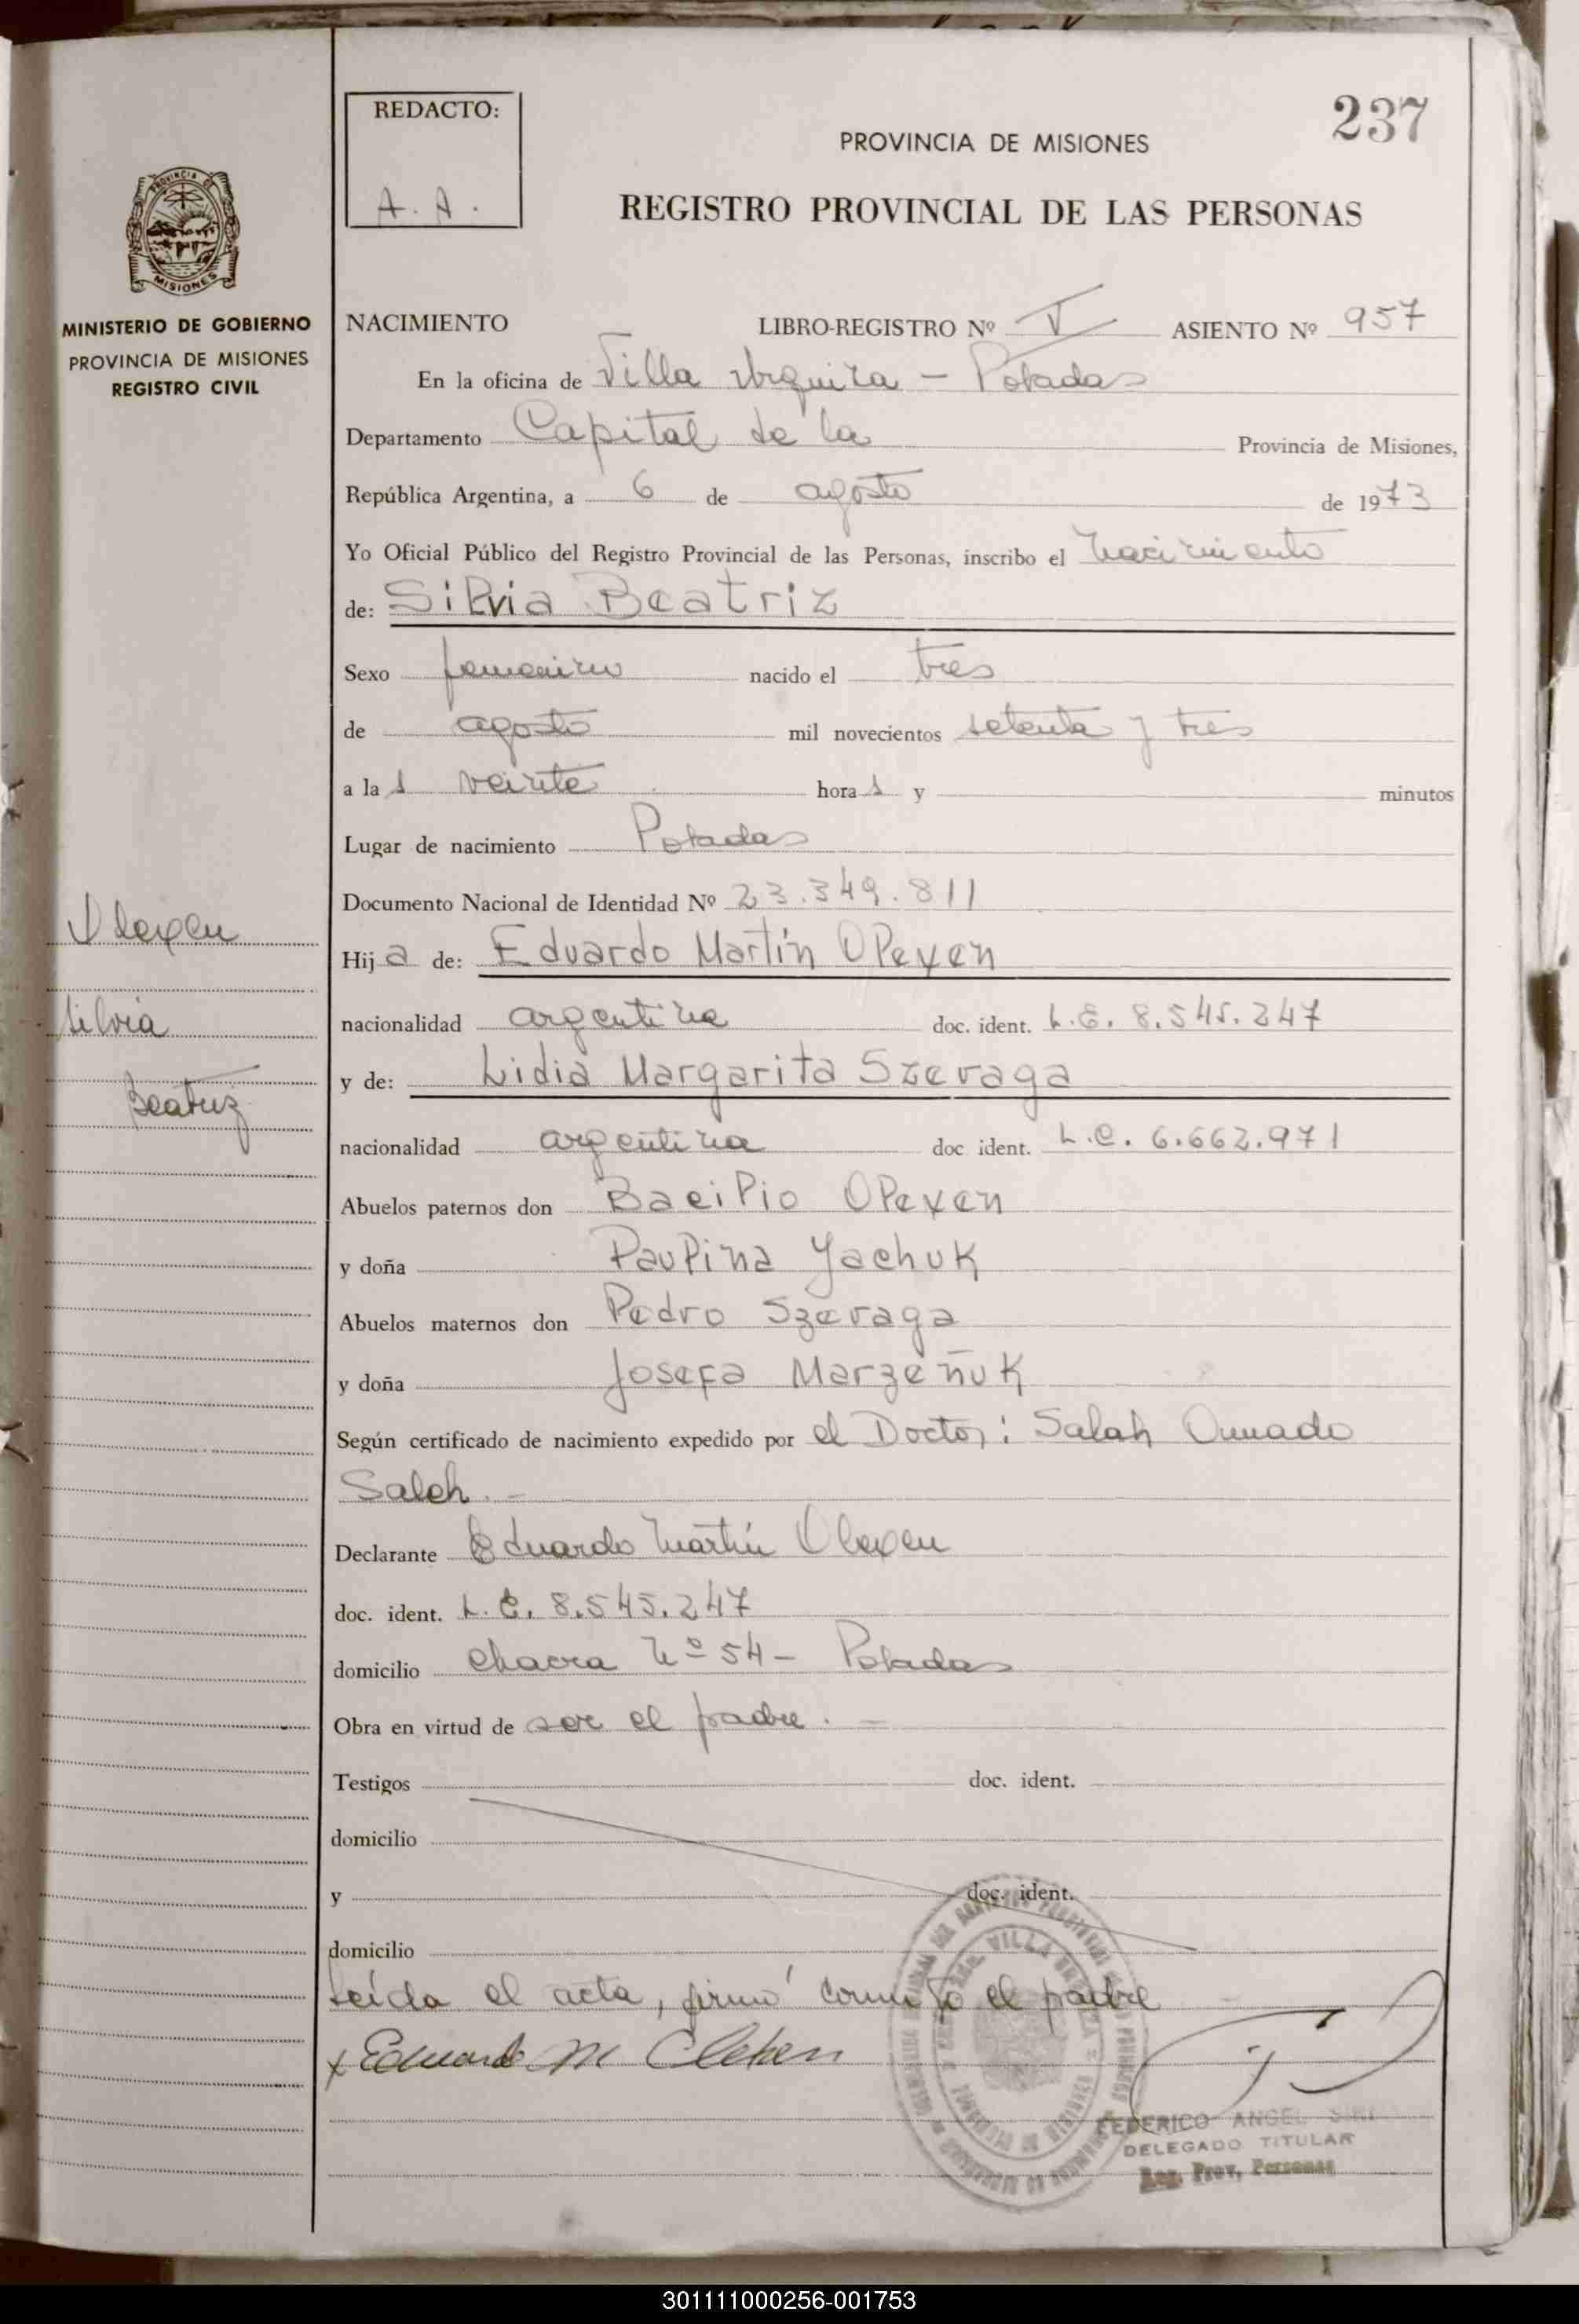 237
REDACTO:
A. A.
PROVINCIA DE MISIONES
REGISTRO PROVINCIAL DE LAS PERSONAS
PROVINCIA DE
MISIONES
MINISTERIO DE GOBIERNO
PROVINCIA DE MISIONES
REGISTRO CIVIL
NACIMIENTO LIBRO-REGISTRO Nº V ASIENTO Nº 957
En la oficina de Villa Urquiza - Posadas
Departamento Capital de la Provincia de Misiones,
República Argentina, a 6 de agosto de 1973
Yo Oficial Público del Registro Provincial de las Personas, inscribo el nacimiento
de: Silvia Beatriz
Sexo femenino nacido el tres
de agosto mil novecientos setenta y tres
a las veinte horas y minutos
Lugar de nacimiento Posadas
Documento Nacional de Identidad Nº 23.349.811
Olexen
Silvia
Beatriz
Hija de: Eduardo Martín Olexen
nacionalidad argentina doc. ident. L.E. 8.545.247
y de: Lidia Margarita Szevaga
nacionalidad argentina doc ident. L.C. 6.662.971
Abuelos paternos don Bacilio Olexen
y doña Paulina Yachuk
Abuelos maternos don Pedro Szevaga
y doña Josefa Marzeñuk
Según certificado de nacimiento expedido por el Doctor: Salah
Saleh. -
Declarante Eduardo Martín Olexen
doc. ident. L.E. 8.545.247
domicilio chacra Nº 54 - Posadas
Obra en virtud de ser el padre. -
Testigos doc. ident.
domicilio
y doc. ident.
domicilio
Leída el acta, firmó conmigo el padre
x Eduardo M Olexen
FEDERICO ANGEL
DELEGADO TITULAR
Reg. Prov. Personas
301111000256-001753